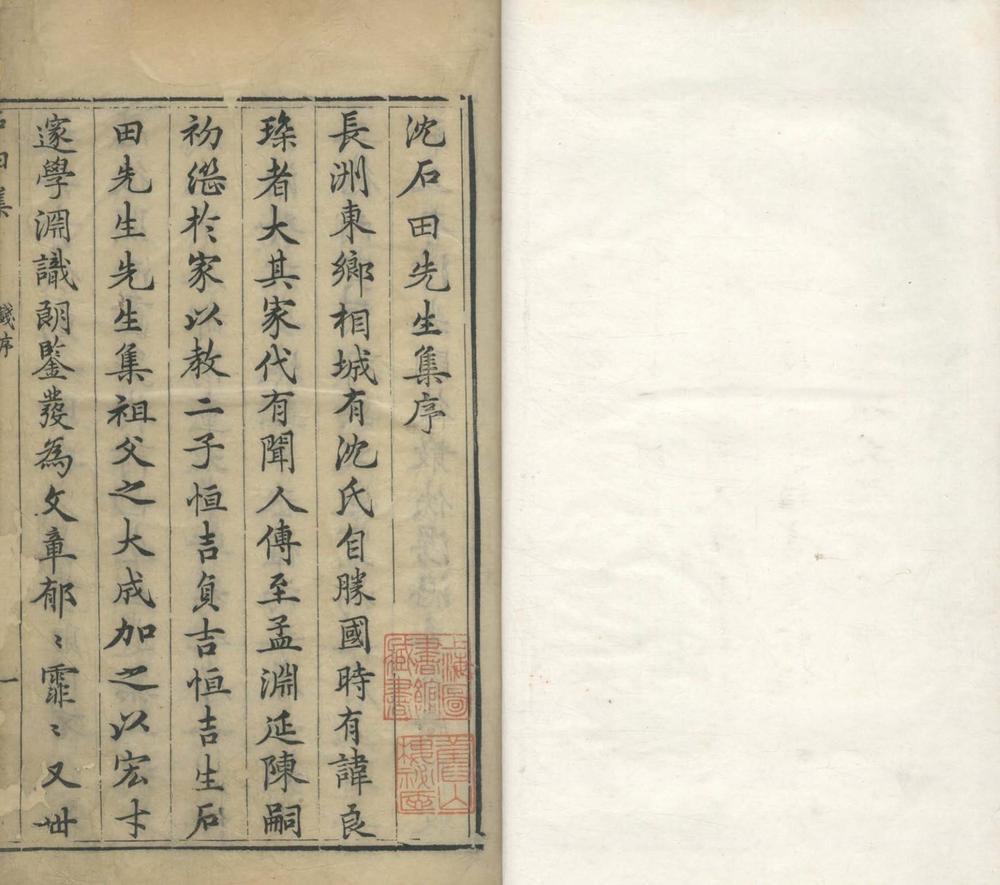 沈石田先生集序
長洲東鄉相城有沈氏自勝國時有諱良
琛者大其家代有聞人傳至孟淵延陳嗣
初先於家以教二子恒吉貞吉恒吉生石
田先生先生集祖父之大成加之以宏才
邃學淵識朗鑒發為文章郁〻霏〻又世
石田集
錢序
一
上海圖
書館
藏書